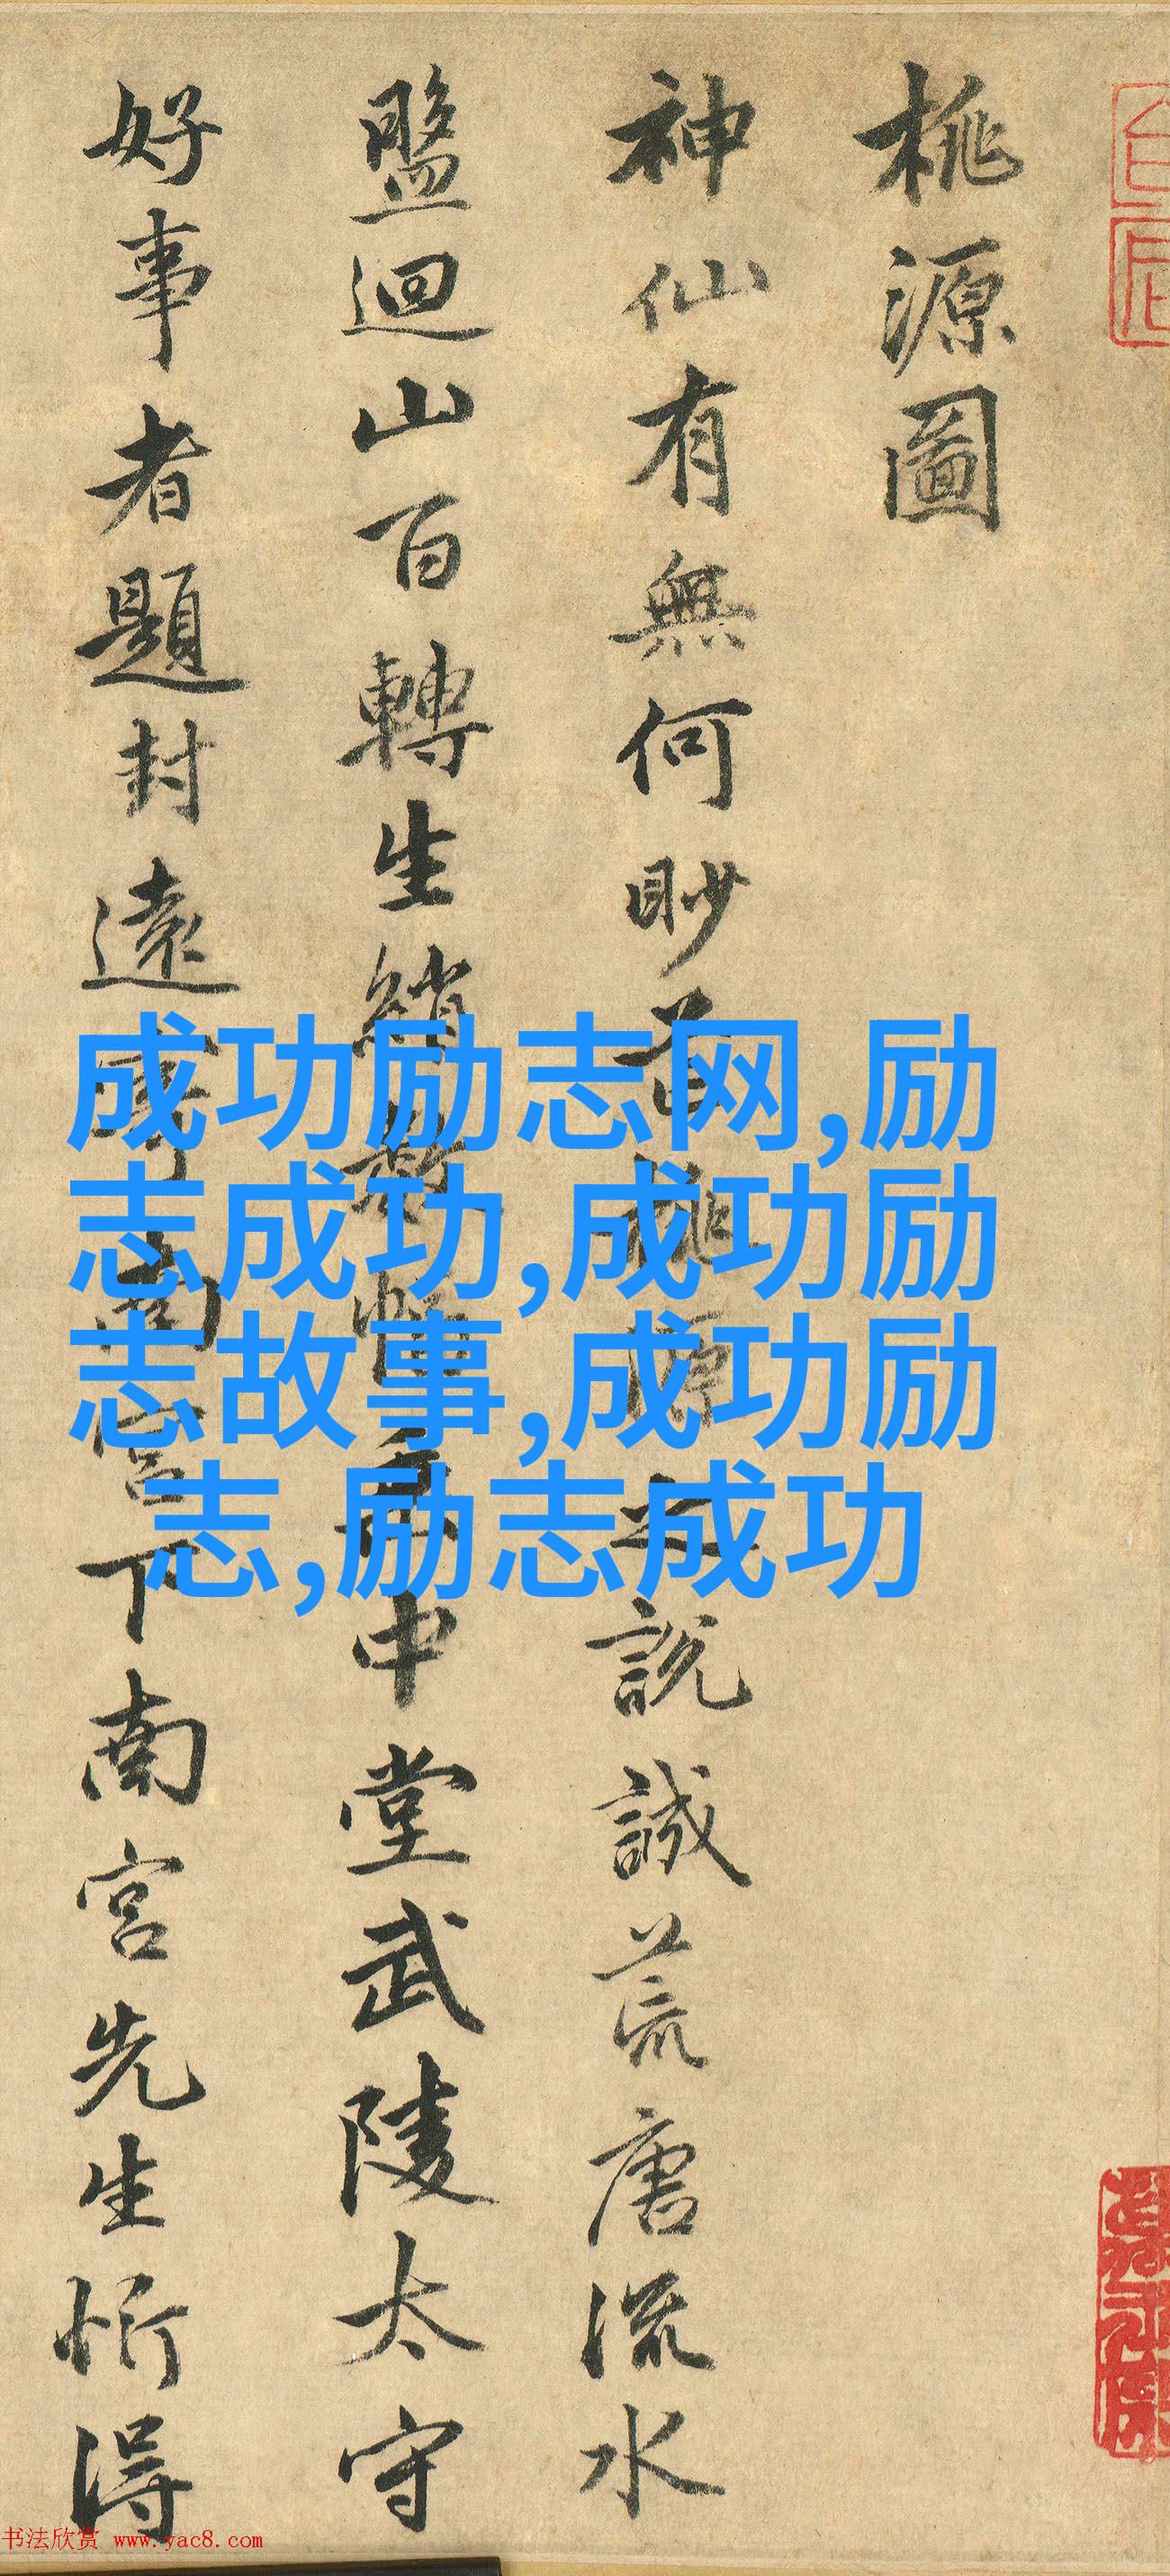 桃源圖
神仙有無何眇芒桃源之說誠荒唐流水
盤迴山百轉生綃數幅垂中堂武陵太守
好事者題封遠寄南宮下南宮先生忻得
成功励志网,励
志成功,成功励
志故事,成功励
志,励志成功
书法欣赏 www.yac8.com